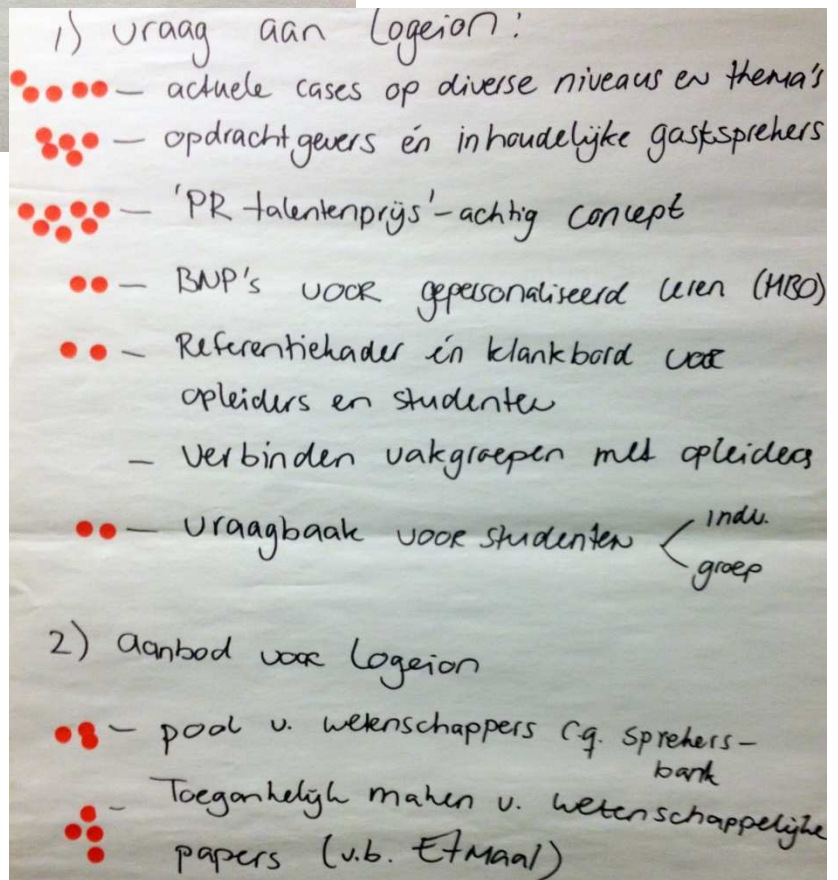 1) vraag aan Logeion:
– actuele cases op diverse niveaus en thema's
– opdrachtgevers én inhoudelijke gastsprekers
– 'PR talentenprijs'-achtig concept
– BNP'S VOOR gepersonaliseerd leren (MBO)
– Referentiekader én klankbord voor
opleiders en studenten
– verbinden vakgroepen met opleiders
– vraagbaak voor studenten < indiv.
groep
2) aanbod voor Logeion
– pool v. wetenschappers c.q. sprekers-
bank
– Toegankelijk maken v. wetenschappelijke
papers (v.b. Etmaal)